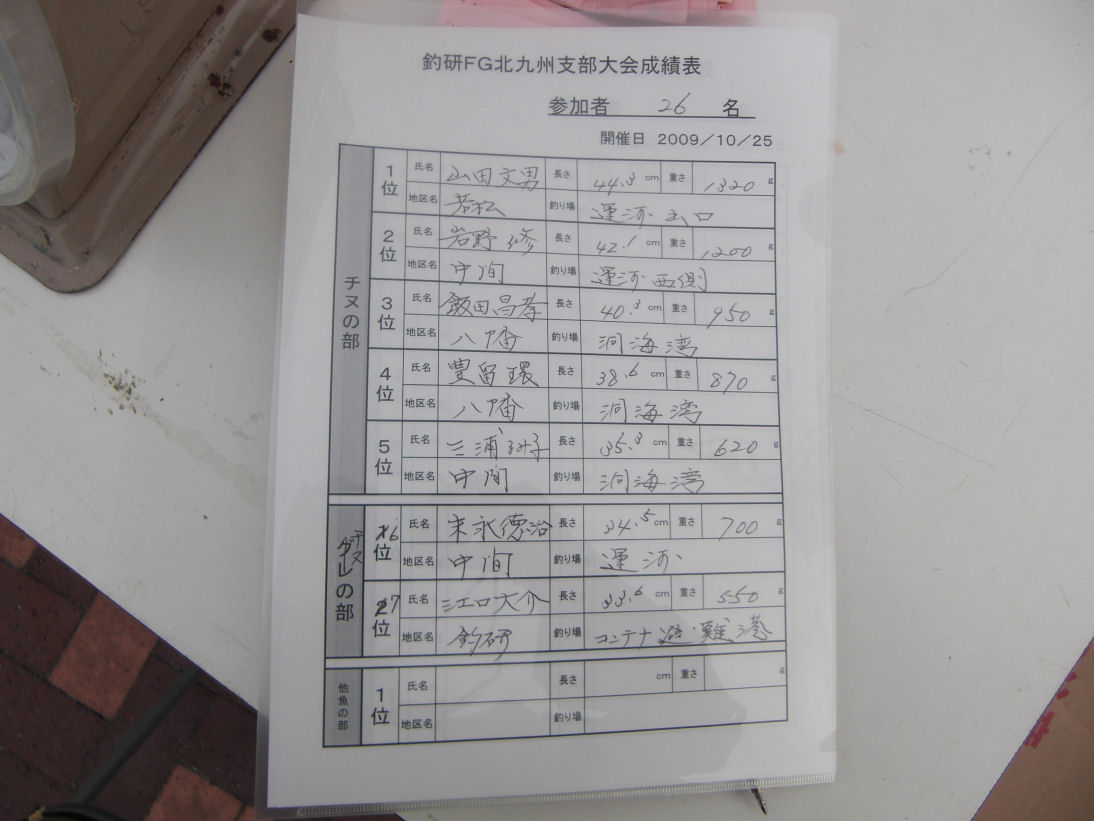 釣研FG北九州支部大会成績表
参加者 26 名
開催日 2009/10/25
チヌの部
1位 氏名 山田文男 長さ 44.3 cm 重さ 1320 g
地区名 若松 釣り場 運河出口
2位 氏名 岩野修 長さ 42.1 cm 重さ 1200 g
地区名 中間 釣り場 運河西側
3位 氏名 飯田昌孝 長さ 40.3 cm 重さ 950 g
地区名 八幡 釣り場 洞海湾
4位 氏名 豊留環 長さ 38.6 cm 重さ 870 g
地区名 八幡 釣り場 洞海湾
5位 氏名 三浦 長さ 35.3 cm 重さ 620 g
地区名 中間 釣り場 洞海湾
チヌの部
6位 氏名 末永德治 長さ 34.5 cm 重さ 700 g
地区名 中間 釣り場 運河
7位 氏名 江口大介 長さ 33.6 cm 重さ 550 g
地区名 釣研 釣り場 コンテナ避難港
他魚の部
1位 氏名 長さ cm 重さ g
地区名 釣り場